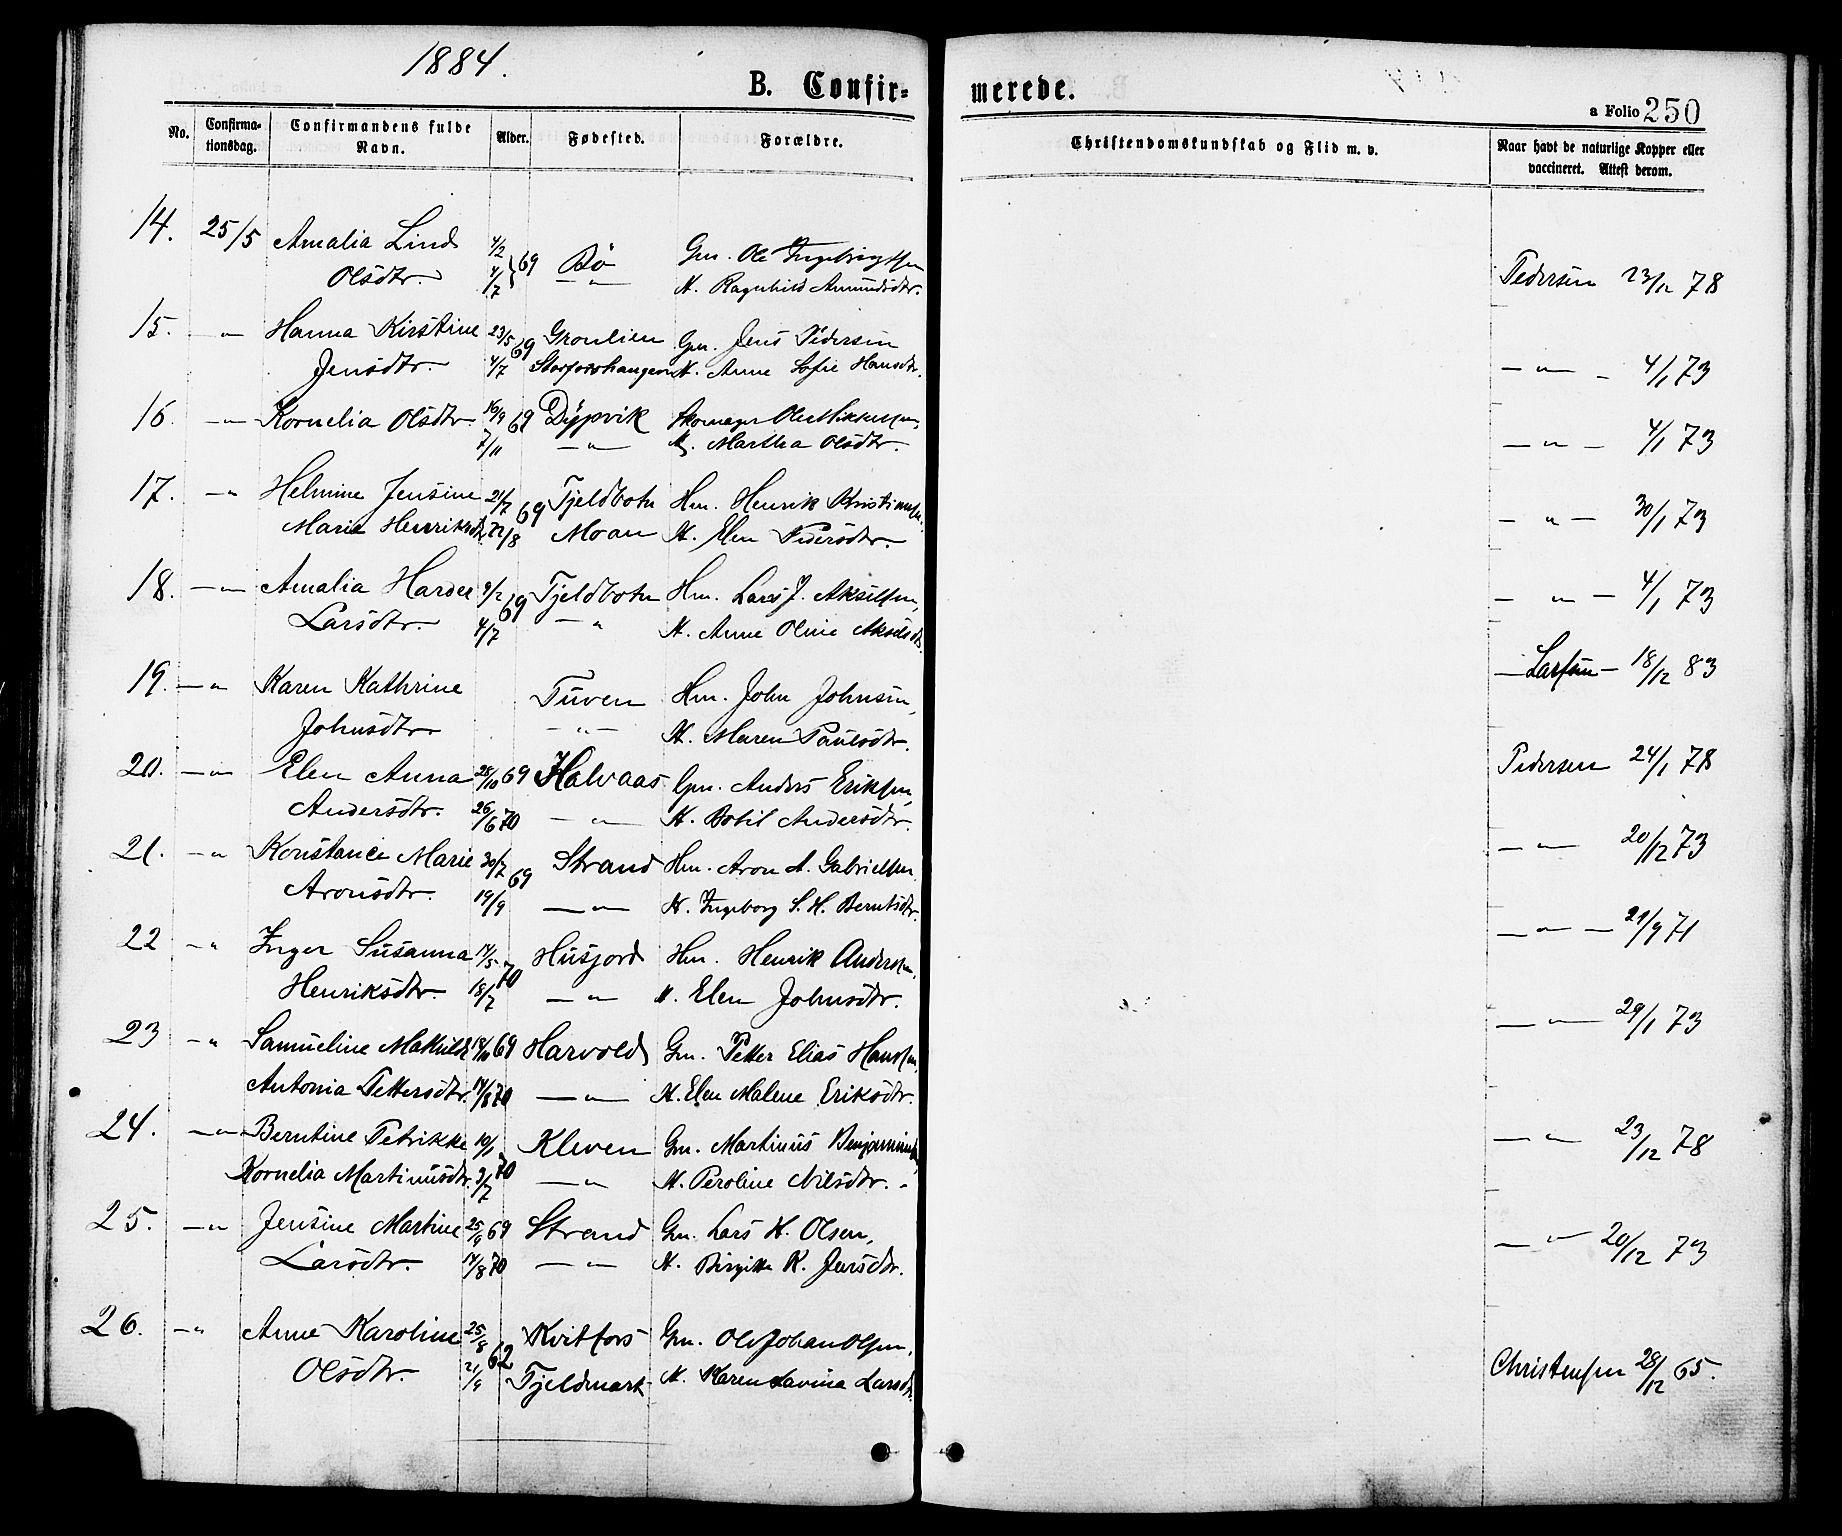 1884.
B. Confir= merede.
a Folio 250
No. Confirma-tionsdag. Confirmandens fulde Navn. Alder. Fødested. Forældre. Christendomskundskab og Flid m. v. Naar havt de naturlige Kopper eller vaccineret. Attest derom.
14. 25/5 Amalia Lind 4/2 69 Bø Gm. Ole Ingebrigtsen
Olsdtr. 4/7 — " — K. Ragnhild Amundsdtr. Pedersen 23/12 78
15. — " Hanna Kirstine 23/5 69 Gronlien Gm. Jens Pedersen
Jensdtr. 4/7 Storforshaugen K. Anne Sofie Hansdtr. — " — 4/1 73
16. — " Kornelia Olsdtr. 16/9 69 Dÿpvik Skomager Ole Mikkelsen,
7/11 — " — K. Martha Olsdtr. — " — 4/1 73
17. — " Helmine Jensine 21/7 69 Tjeldbotn Hm. Henrik Kristiansen
Marie Henriksdtr. 22/8 Moan K. Elen Pedersdtr. — " — 30/1 73
18. — " Amalia Harder 9/2 69 Tjeldbotn Hm. Lars J. Akselsen,
Larsdtr. 4/7 — " K. Anne Oline Akselsdtr. — " — 4/1 73
19. — " Karen Kathrine Tuven Hm. John Johnsen,
Johnsdtr. — " — K. Maren Paulsdtr. — Larsen — 18/12 83
20. — " Elen Anna 28/10 69 Halvaas Gm. Anders Eriksen,
Andersdtr. 26/6 70 — " — K. Botil Andersdtr. Pedersen 24/1 78
21. — " Konstance Marie 30/7 69 Strand Hm. Aron A. Gabrielsen.
Aronsdtr. 19/9 — " — K. Ingeborg S. H. Berntsdtr. — " — 20/12 73
22 — " Inger Susanna 14/5 70 Husjord Hm. Henrik Andersen,
Henriksdtr. 18/7 — " K. Elen Johnsdtr. — " — 21/9 71
23 — " Samueline Mathilde 18/10 69 Harvold Gm. Petter Elias Hansen,
Antonia Pettersdtr. 14/8 70 — " — K. Elen Malene Eriksdtr. — " — 29/1 73
24. — " Berntine Petrikke 10/1 70 Kleven Gm. Martinus Benjaminsen,
Kornelia Martinusdtr. 3/7 — " K. Peroline Nilsdtr. — " 23/12 78
25. — " Jensine Martine 25/9 69 Strand Gm. Lars K. Olsen,
Larsdtr. 14/8 70 — " — K. Birgitte K. Jensdtr. — " 20/12 73
26. — " Anne Karoline 25/8 62 Kvitfors Gm. Ole Johan Olsen,
Olsdtr. 21/9 Tjeldmark K. Karen Lavina Larsdtr. Christensen 28/12 65.